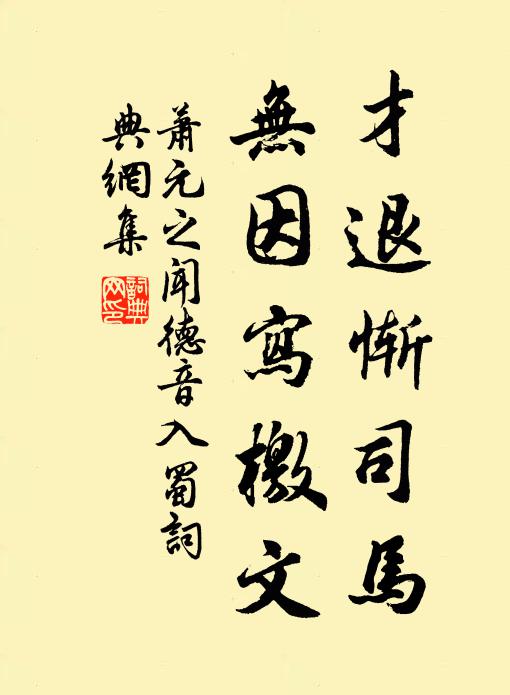 才退慚司馬
無因寫檄文
蕭元之聞德音入蜀詞
典網集
詞典
网印